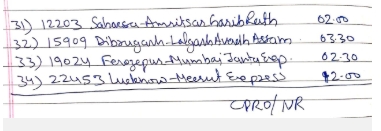 31) 12203 Saharsa-Amritsar Garib Rath 02.00
32) 15909 Dibrugarh-Lalgarh Avadh Assam. 03.30
33) 19024 Ferozepur-Mumbai Janta Exp. 02-30
34) 22453 Lucknow-Meerut Express 12-00
CPRO/NR